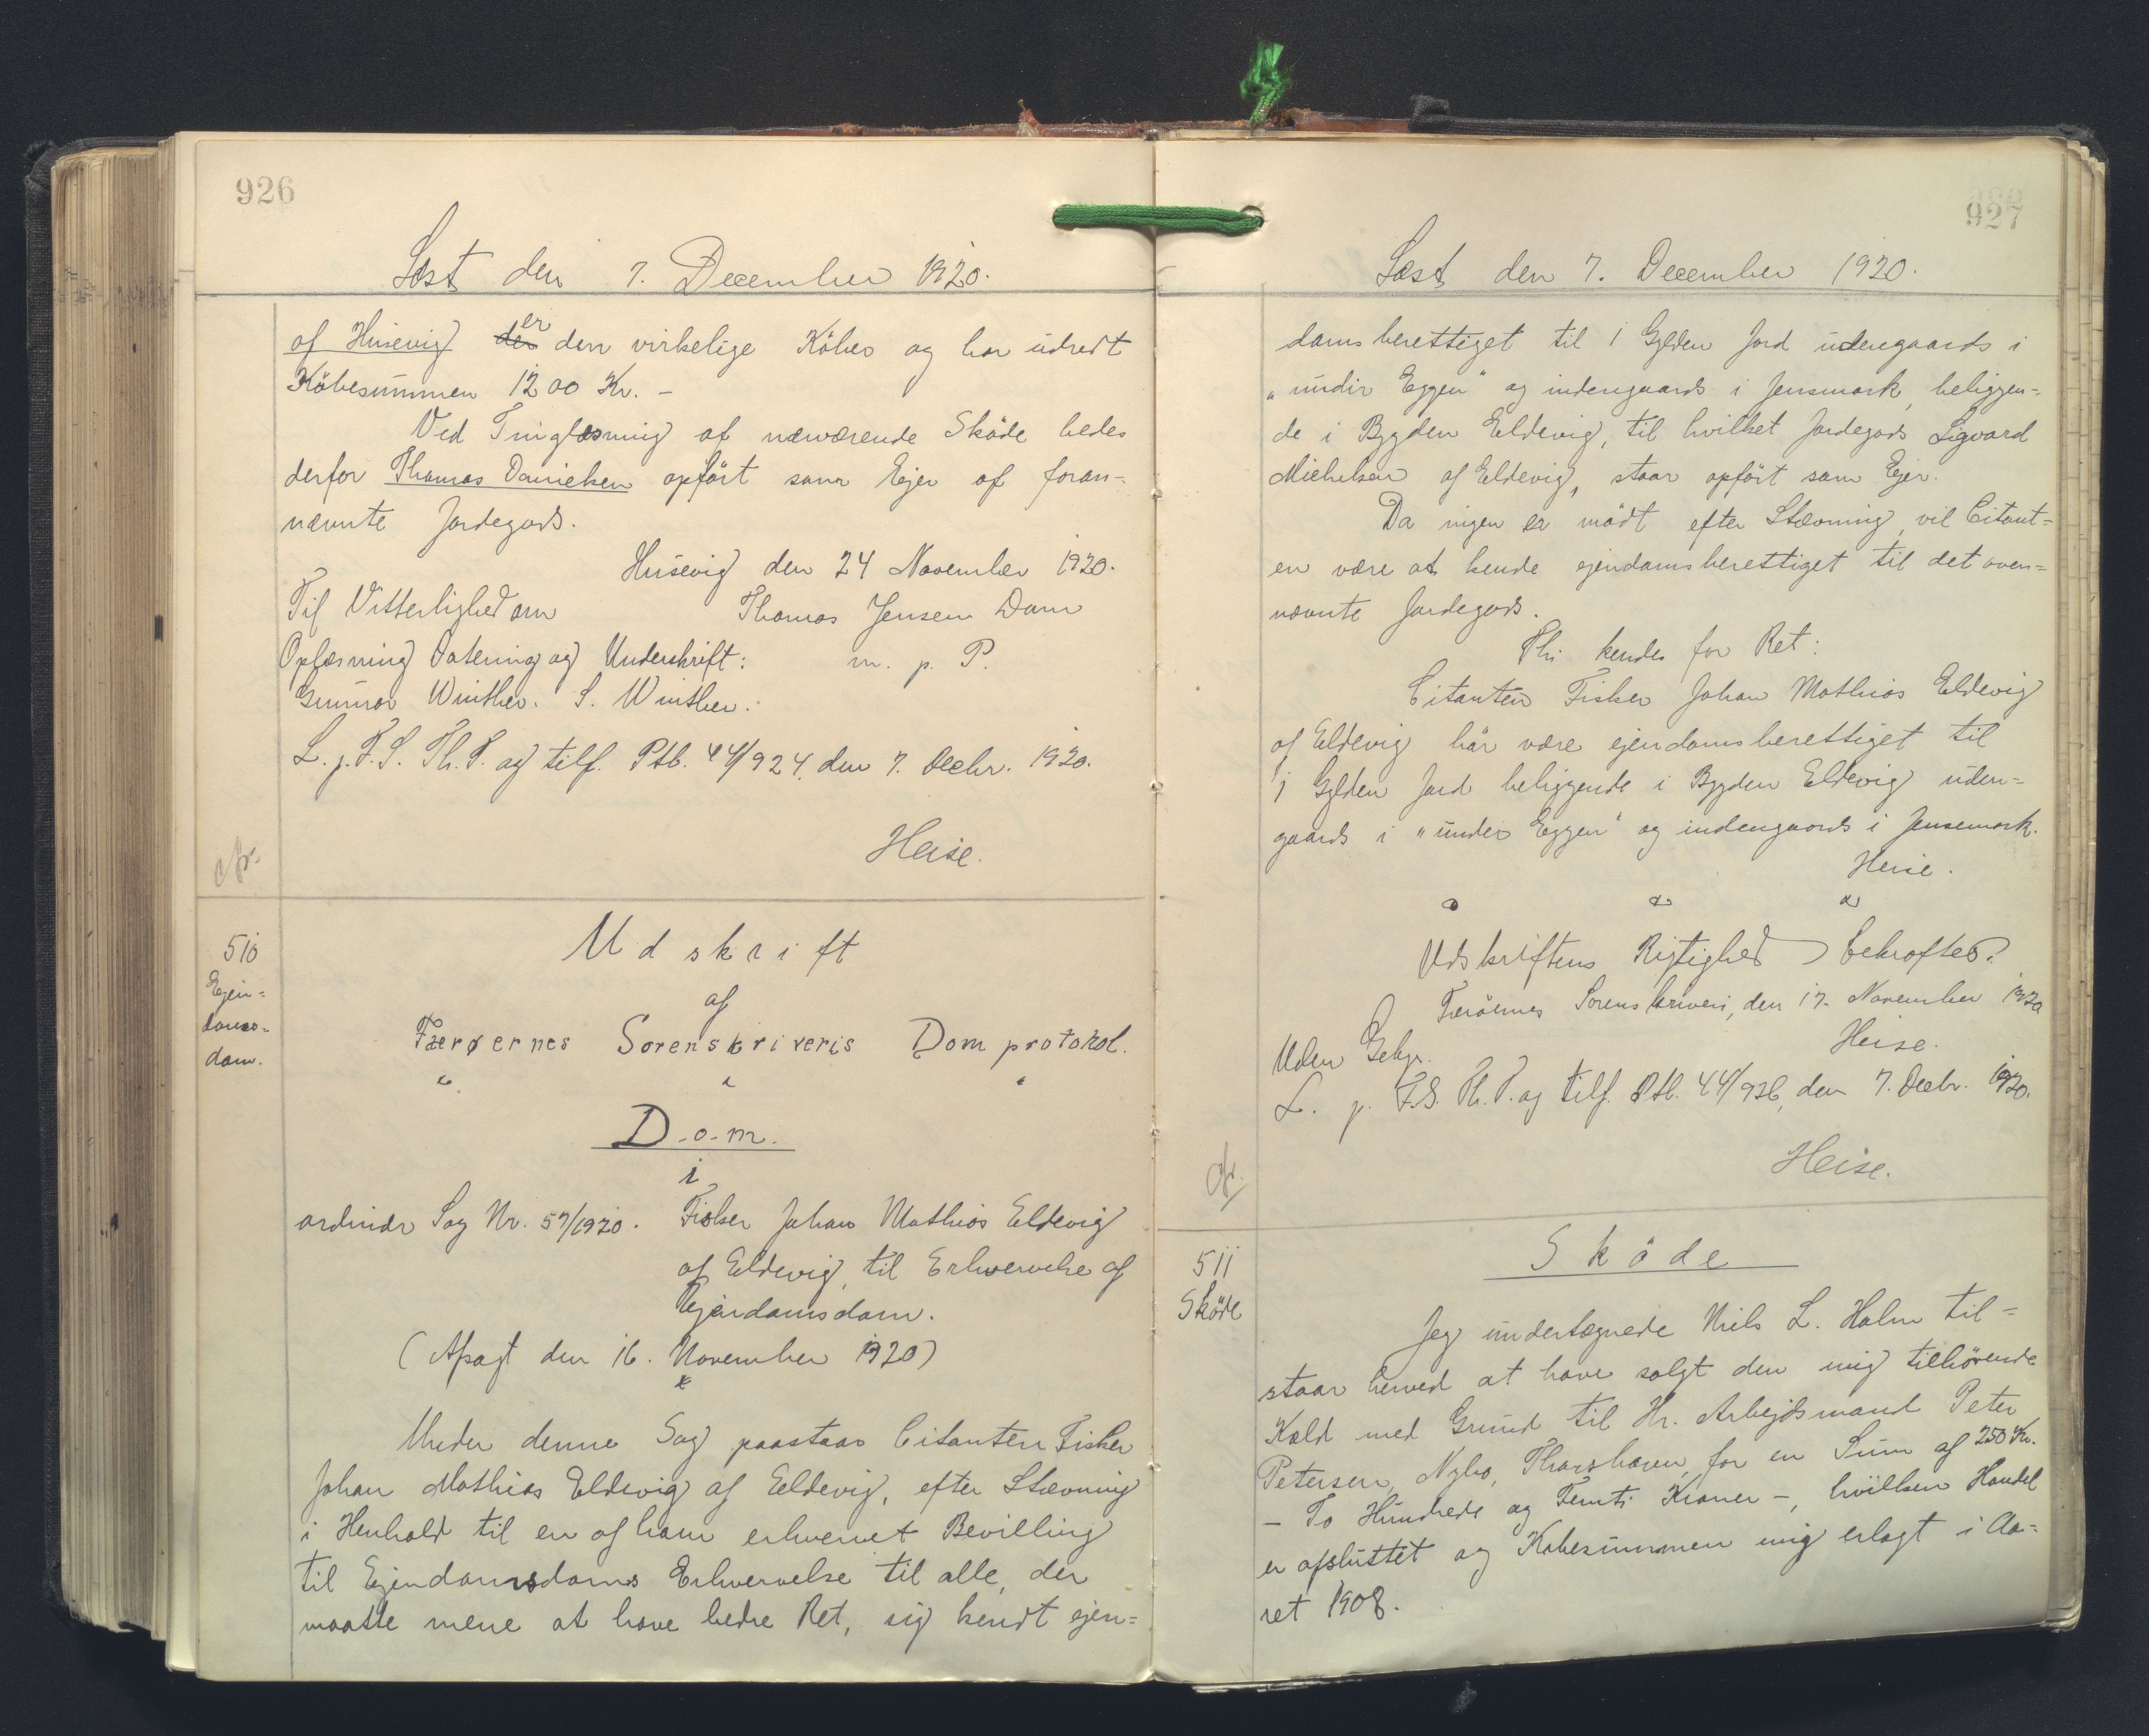 926
Læst den 7. December 1920.
af Húsevig er den virkelige Köber og har udredt
Köbesummen 1200 Kr. -
Ved Tinglæsning af nærværende Sköde bedes
derfor Thomas Danielsen opført som Ejer af foran-
nævnte Jordegods.
Húsevig den 24 November 1920.
Til Vitterlighed om
Thomas Jensen Dam
Oplæsning Datering og Underskrift:
m. p. P.
Gunnar Winther. S. Winther.
L. p. F. S. Th. T. og tilf. Ptb. 44/924, den 7. Decbr. 1920.
Heise.
510
Ejen=
doms=
dom.
Udskrift
af
Færøernes Sorenskriveris Domprotokol.
Dom.
i
ordinær Sag Nr. 57/1920. Fisker Johan Mathias Eldevig
af Eldevig, til Erhvervelse af
Ejendomsdom.
(Afsagt den 16. November 1920)
Under denne Sag paastaar Citanten Fisker
Johan Mathias Eldevig af Eldevig, efter Stævning
i Henhold til en af ham erhvervet Bevilling
til Ejendomsdoms Erhvervelse til alle, der
maatte mene at have bedre Ret, sig kendt ejen=
927
Læst den 7. December 1920.
domsberettiget til 1 Gylden Jord udengaards i
"undir Eggen" og indengaards i Jensmark, beliggen=
de i Bygden Eldevig, til hvilket Jordegods Sigvard
Michelsen af Eldevig, staar opført som Ejer.
Da ingen er mödt efter Stævning, vil Citant=
en være at kende ejendomsberettiget til det oven=
nævnte Jordegods.
Thi kendes for Ret:
Citanten Fisker Johan Mathias Eldevig
af Eldevig bör være ejendomsberettiget til
1 Gylden Jord beliggende i Bygden Eldevig uden=
gaards i "under Eggen" og indengaards i Jensemark.
Heise.
Udskriftens Rigtighed bekræftes.
Færöernes Sorenskriveri, den 17. November 1920
Heise.
Uden Gebyr.
L. p. F.S. Th. T. og tilf. Ptb. 44/926, den 7. Decbr. 1920.
Heise.
511
Sköde
Sköde
Jeg undertegnede Niels L. Holm til=
staar herved at have solgt den mig tilhörende
Kald med Grund til Hr. Arbejdsmand Peter
Petersen, Nybo, Thorshavn, for en Sum af 250 Kr.
- To Hundrede og Femti Kroner -, hvilken Handel
er afsluttet og Købesummen mig erlagt i Aa=
ret 1908.